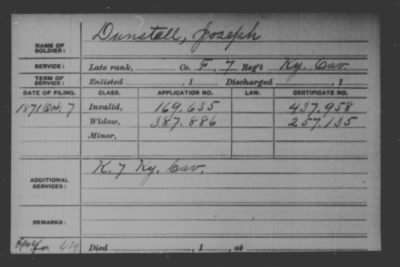 NAME OF SOLDIER: Dunstall, Joseph
SERVICE: Late rank, Co. F, 7 Reg't Ky. Cav.
TERM OF SERVICE: Enlisted , 1 Discharged , 1
DATE OF FILING. CLASS. APPLICATION NO. LAW. CERTIFICATE NO.
1871 Oct. 7 Invalid, 169.635 437.958
Widow, 387.886 257.135
Minor,
K. 7 Ky. Cav.
ADDITIONAL SERVICES:
REMARKS:
Died , 1 , at